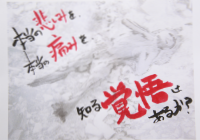 本当の悲しみを
本当の痛みを
知る覚悟は
あるか?